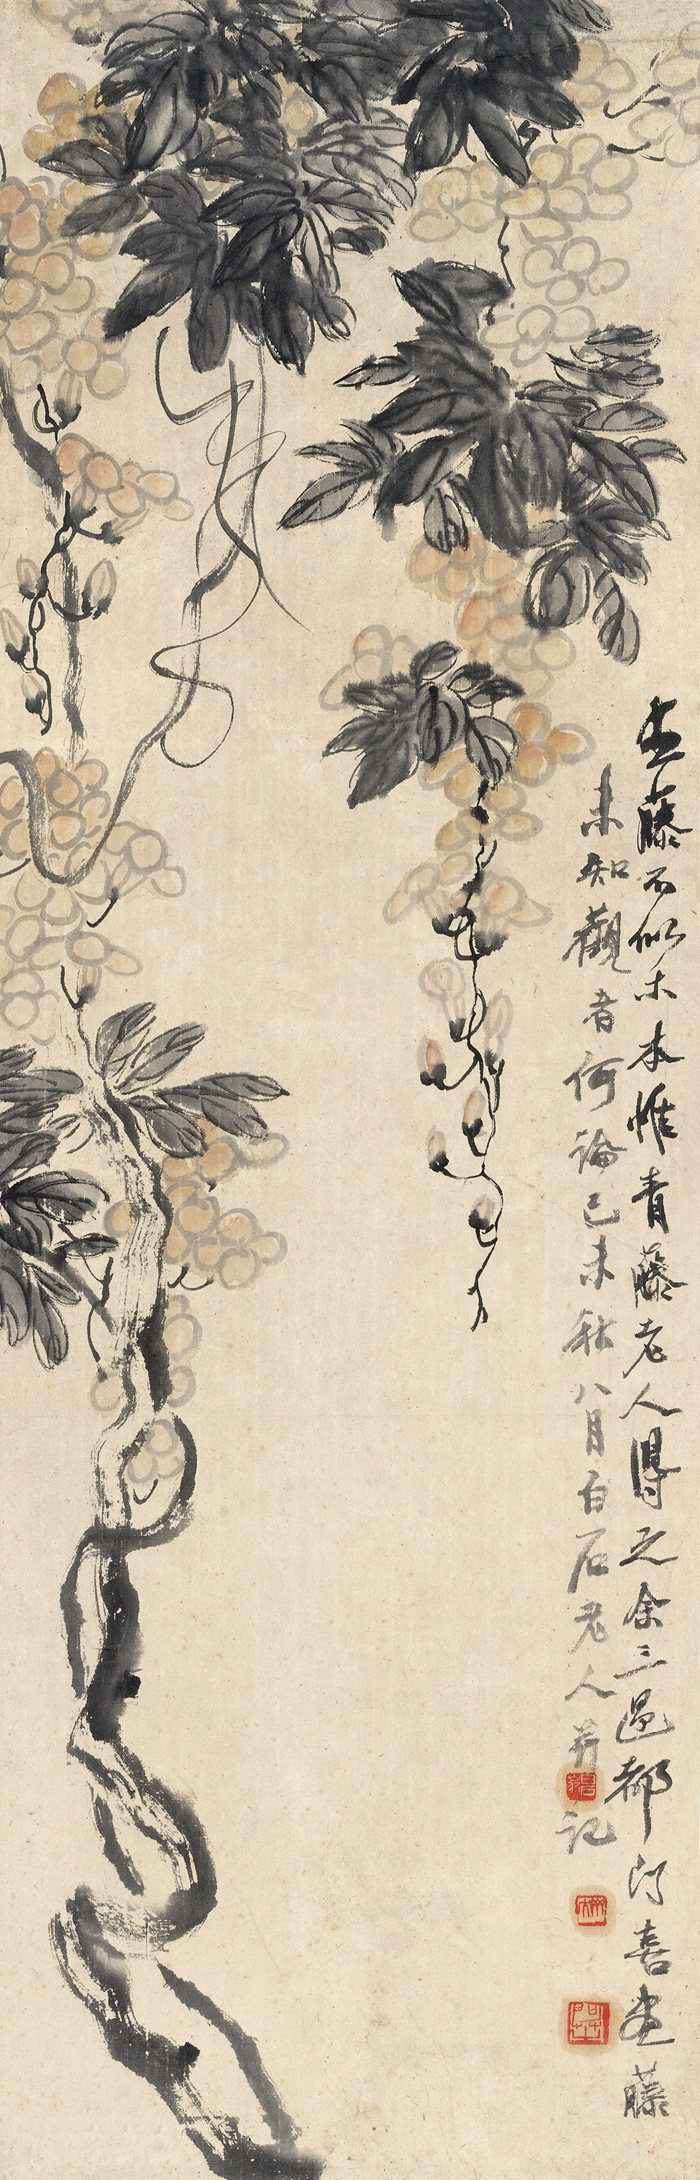 画藤不似木本惟青藤老人得之余三過都门喜画藤
未知觀者何論己未秋八月白石老人并記